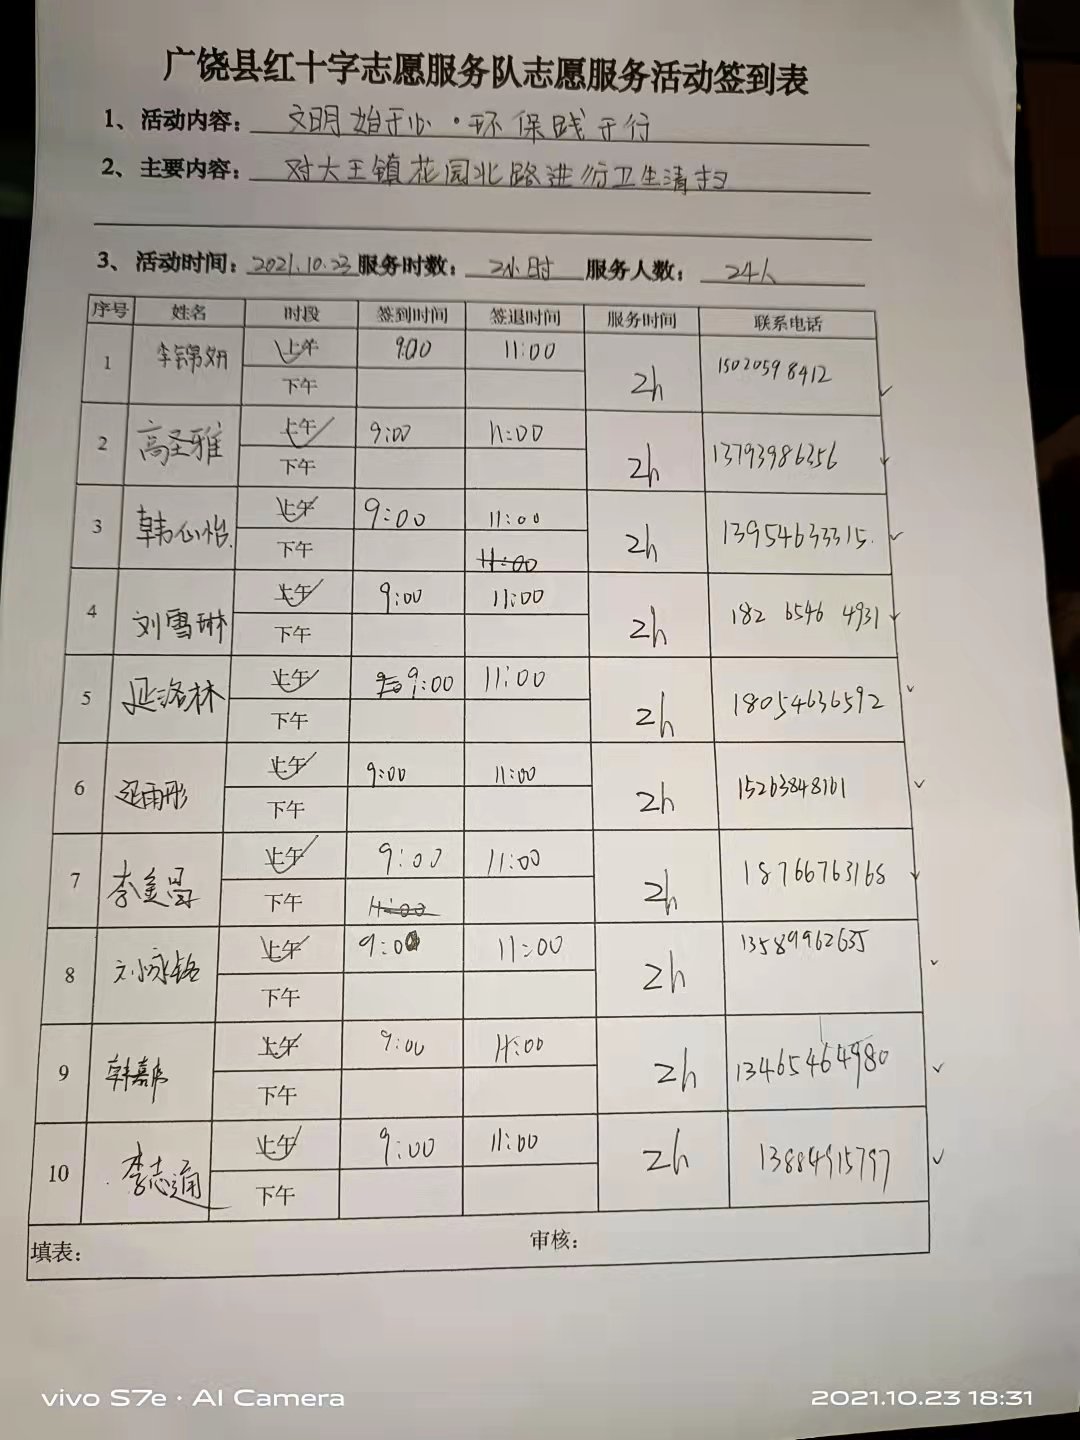 广饶县红十字志愿服务队志愿服务活动签到表
1、活动内容：文明始于心·环保践于行
2、主要内容：对大王镇花园北路进行卫生清扫
3、活动时间：2021.10.23 服务时数：2小时 服务人数：24人
序号 姓名 时段 签到时间 签退时间 服务时间 联系电话
1 李锦妍 上午 9:00 11:00 2h 15020598412
下午
2 高圣雅 上午 9:00 11:00 2h 13793986356
下午
3 韩心怡 上午 9:00 11:00 2h 13954633315
下午 11:00
4 刘雪琳 上午 9:00 11:00 2h 182 6546 4931
下午
5 延洛林 上午 9:00 11:00 2h 18054636592
下午
6 延雨彤 上午 9:00 11:00 2h 15263848161
下午
7 李 上午 9:00 11:00 2h 18766763168
下午 11:00
8 刘永铭 上午 9:00 11:00 2h 13589962635
下午
9 韩嘉 上午 9:00 11:00 2h 13465464980
下午
10 李志通 上午 9:00 11:00 2h 13884915797
下午
填表： 审核：
vivo S7e · AI Camera 2021.10.23 18:31